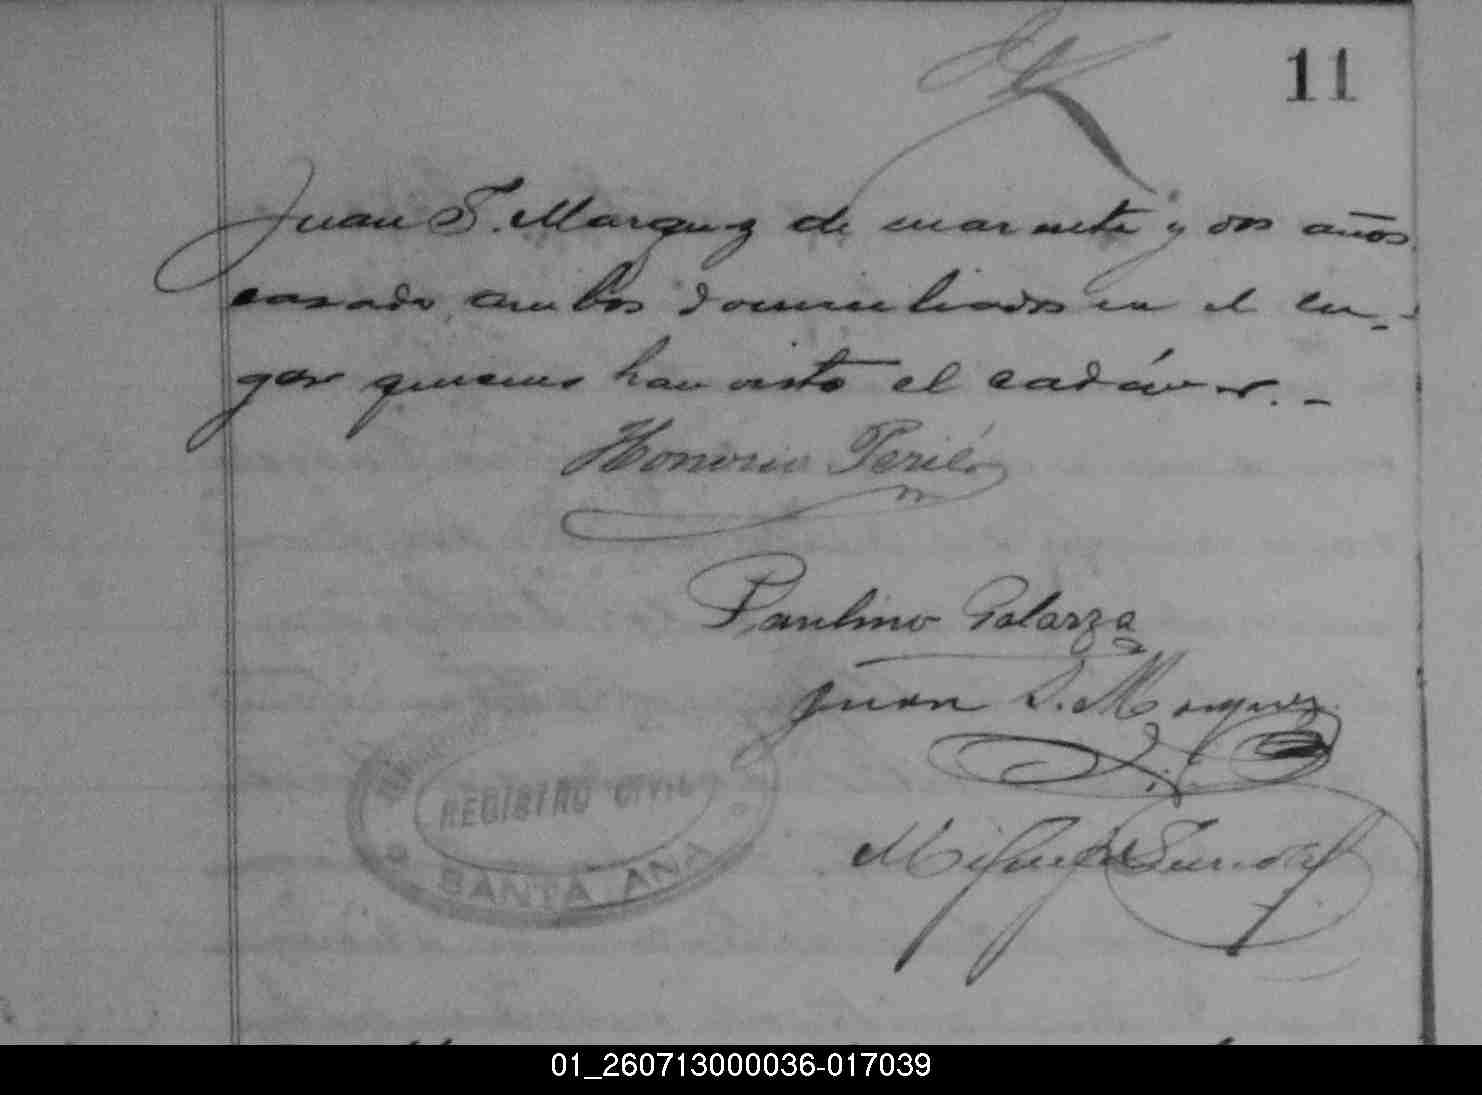 11
Juan S. Marquez de cuarenta y dos años
casado, ambos domiciliados en el lu-
gar quienes han visto el cadáver.-
Honorio Perié
Paulino Galarza
Juan S. Marquez
REGISTRO CIVIL
SANTA ANA
Miguel
01_260713000036-017039